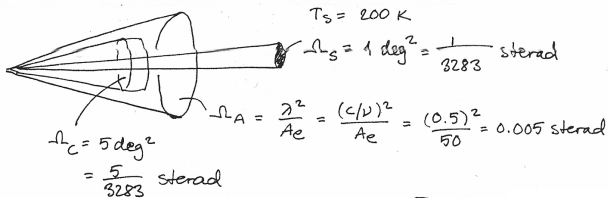 T_S = 200 K
Ω_S = 1 deg² = 1/3283 sterad
Ω_A = λ²/A_e = (c/ν)²/A_e = (0.5)²/50 = 0.005 sterad
Ω_C = 5 deg²
= 5/3283 sterad